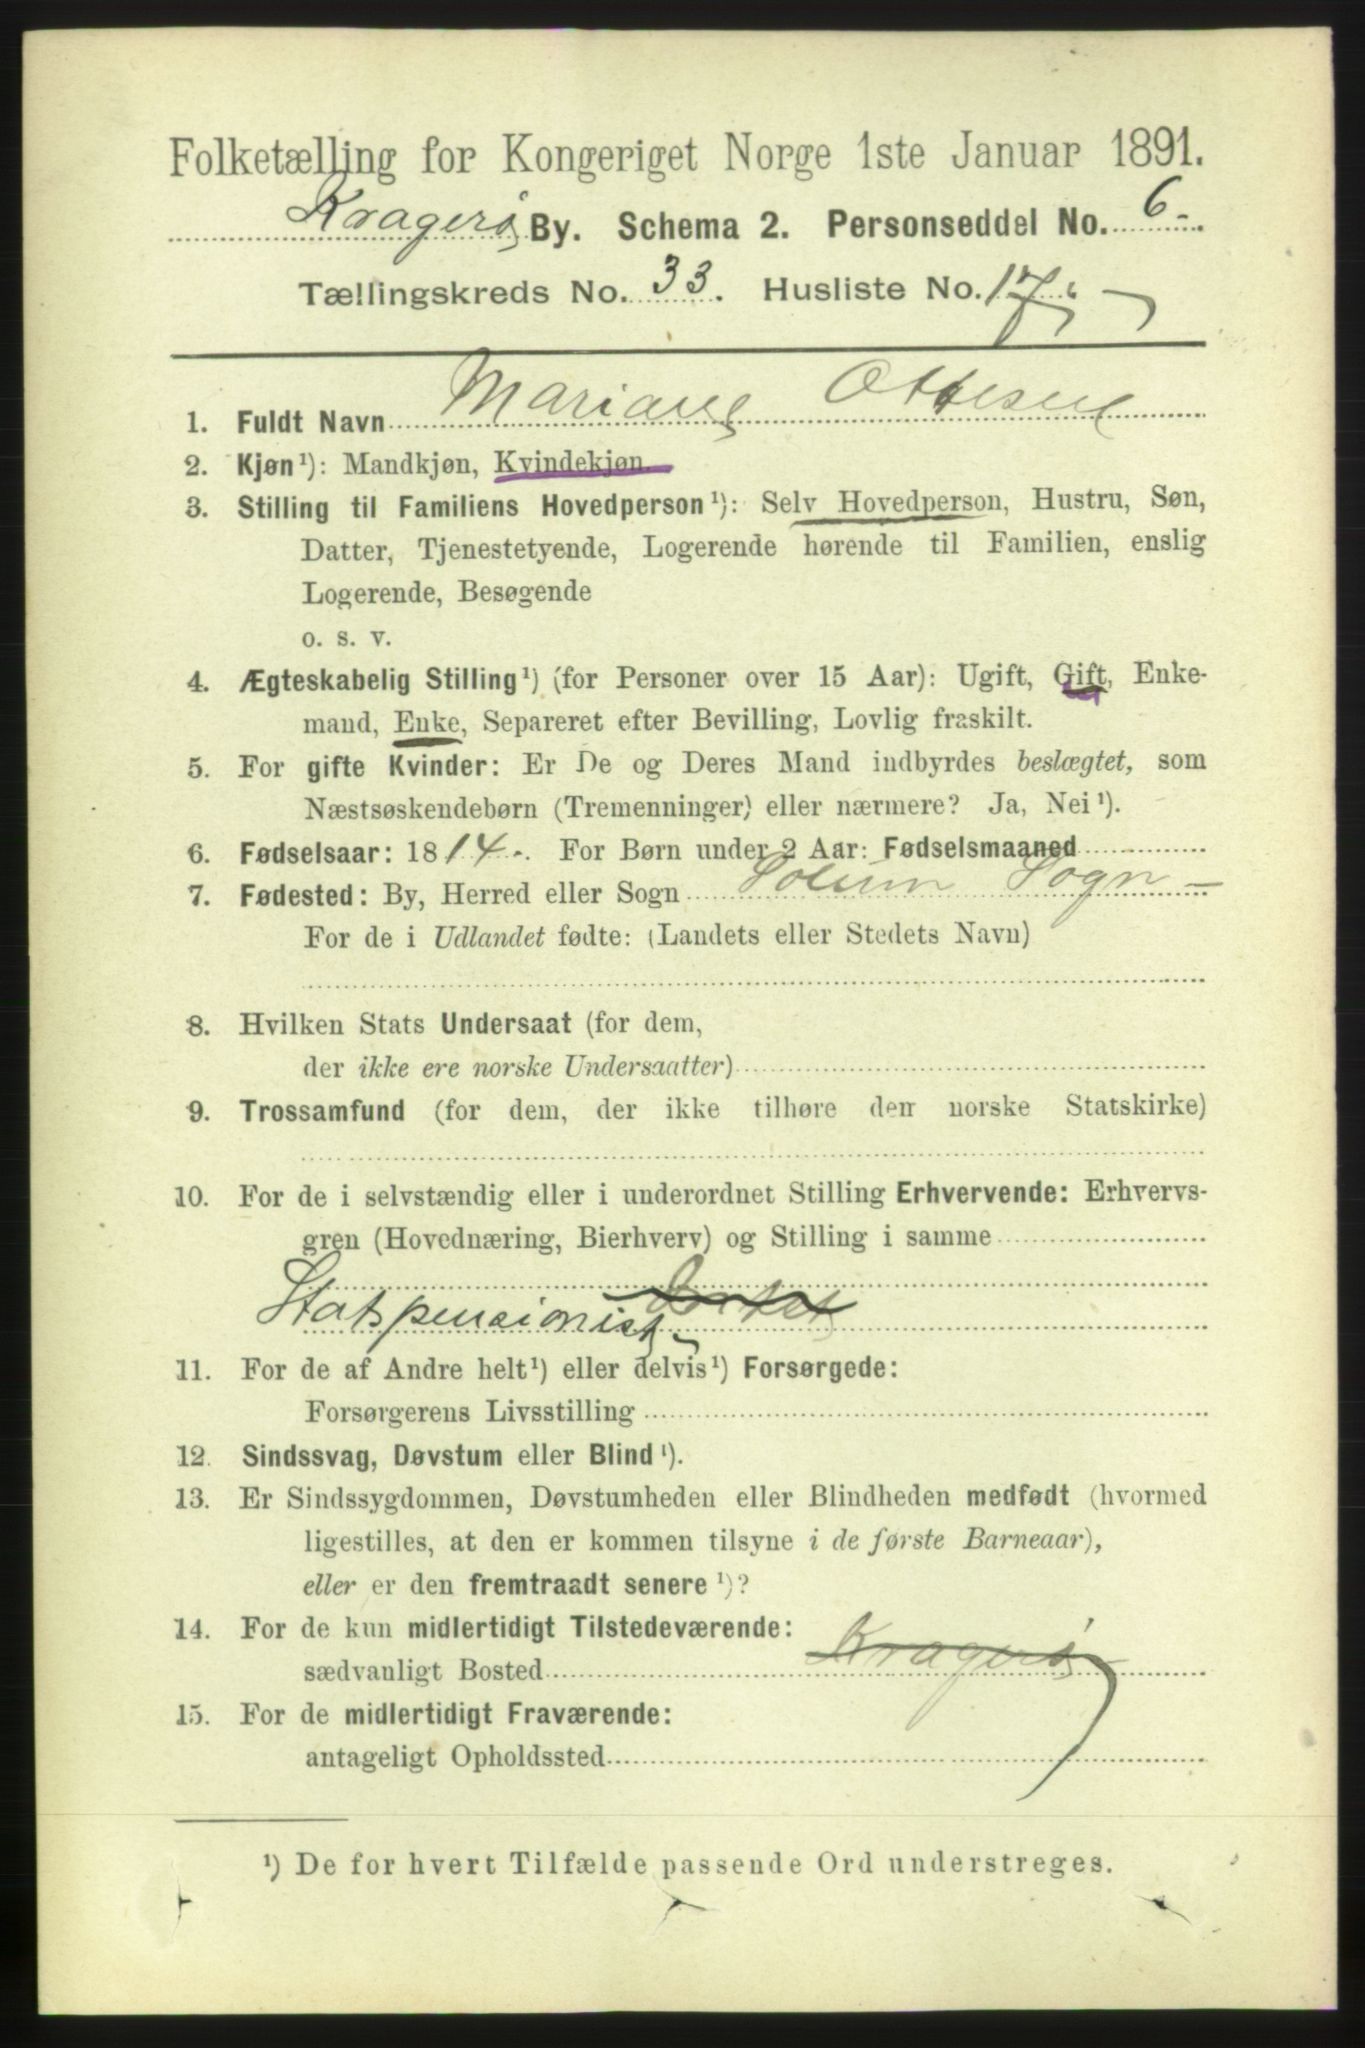 Folketælling for Kongeriget Norge 1ste Januar 1891.
Kragerø By. Schema 2. Personseddel No. 6-
Tællingskreds No. 33. Husliste No. 17.
1. Fuldt Navn Mariane Ottesen
2. Kjøn¹): Mandkjøn, Kvindekjøn
3. Stilling til Familiens Hovedperson¹): Selv Hovedperson, Hustru, Søn,
Datter, Tjenestetyende, Logerende hørende til Familien, enslig
Logerende, Besøgende
o. s. v.
4. Ægteskabelig Stilling¹) (for Personer over 15 Aar): Ugift, Gift, Enke-
mand, Enke, Separeret efter Bevilling, Lovlig fraskilt.
5. For gifte Kvinder: Er De og Deres Mand indbyrdes beslægtet, som
Næstsøskendebørn (Tremenninger) eller nærmere? Ja, Nei¹).
6. Fødselsaar: 1814. For Børn under 2 Aar: Fødselsmaaned
7. Fødested: By, Herred eller Sogn Solum Sogn
For de i Udlandet fødte: (Landets eller Stedets Navn)
8. Hvilken Stats Undersaat (for dem,
der ikke ere norske Undersaatter)
9. Trossamfund (for dem, der ikke tilhøre den norske Statskirke)
10. For de i selvstændig eller i underordnet Stilling Erhvervende: Erhvervs-
gren (Hovednæring, Bierhverv) og Stilling i samme
Statspensionist
11. For de af Andre helt¹) eller delvis¹) Forsørgede:
Forsørgerens Livsstilling
12. Sindssvag, Døvstum eller Blind¹).
13. Er Sindssygdommen, Døvstumheden eller Blindheden medfødt (hvormed
ligestilles, at den er kommen tilsyne i de første Barneaar),
eller er den fremtraadt senere¹)?
14. For de kun midlertidigt Tilstedeværende:
sædvanligt Bosted Kragerø
15. For de midlertidigt Fraværende:
antageligt Opholdssted
¹) De for hvert Tilfælde passende Ord understreges.